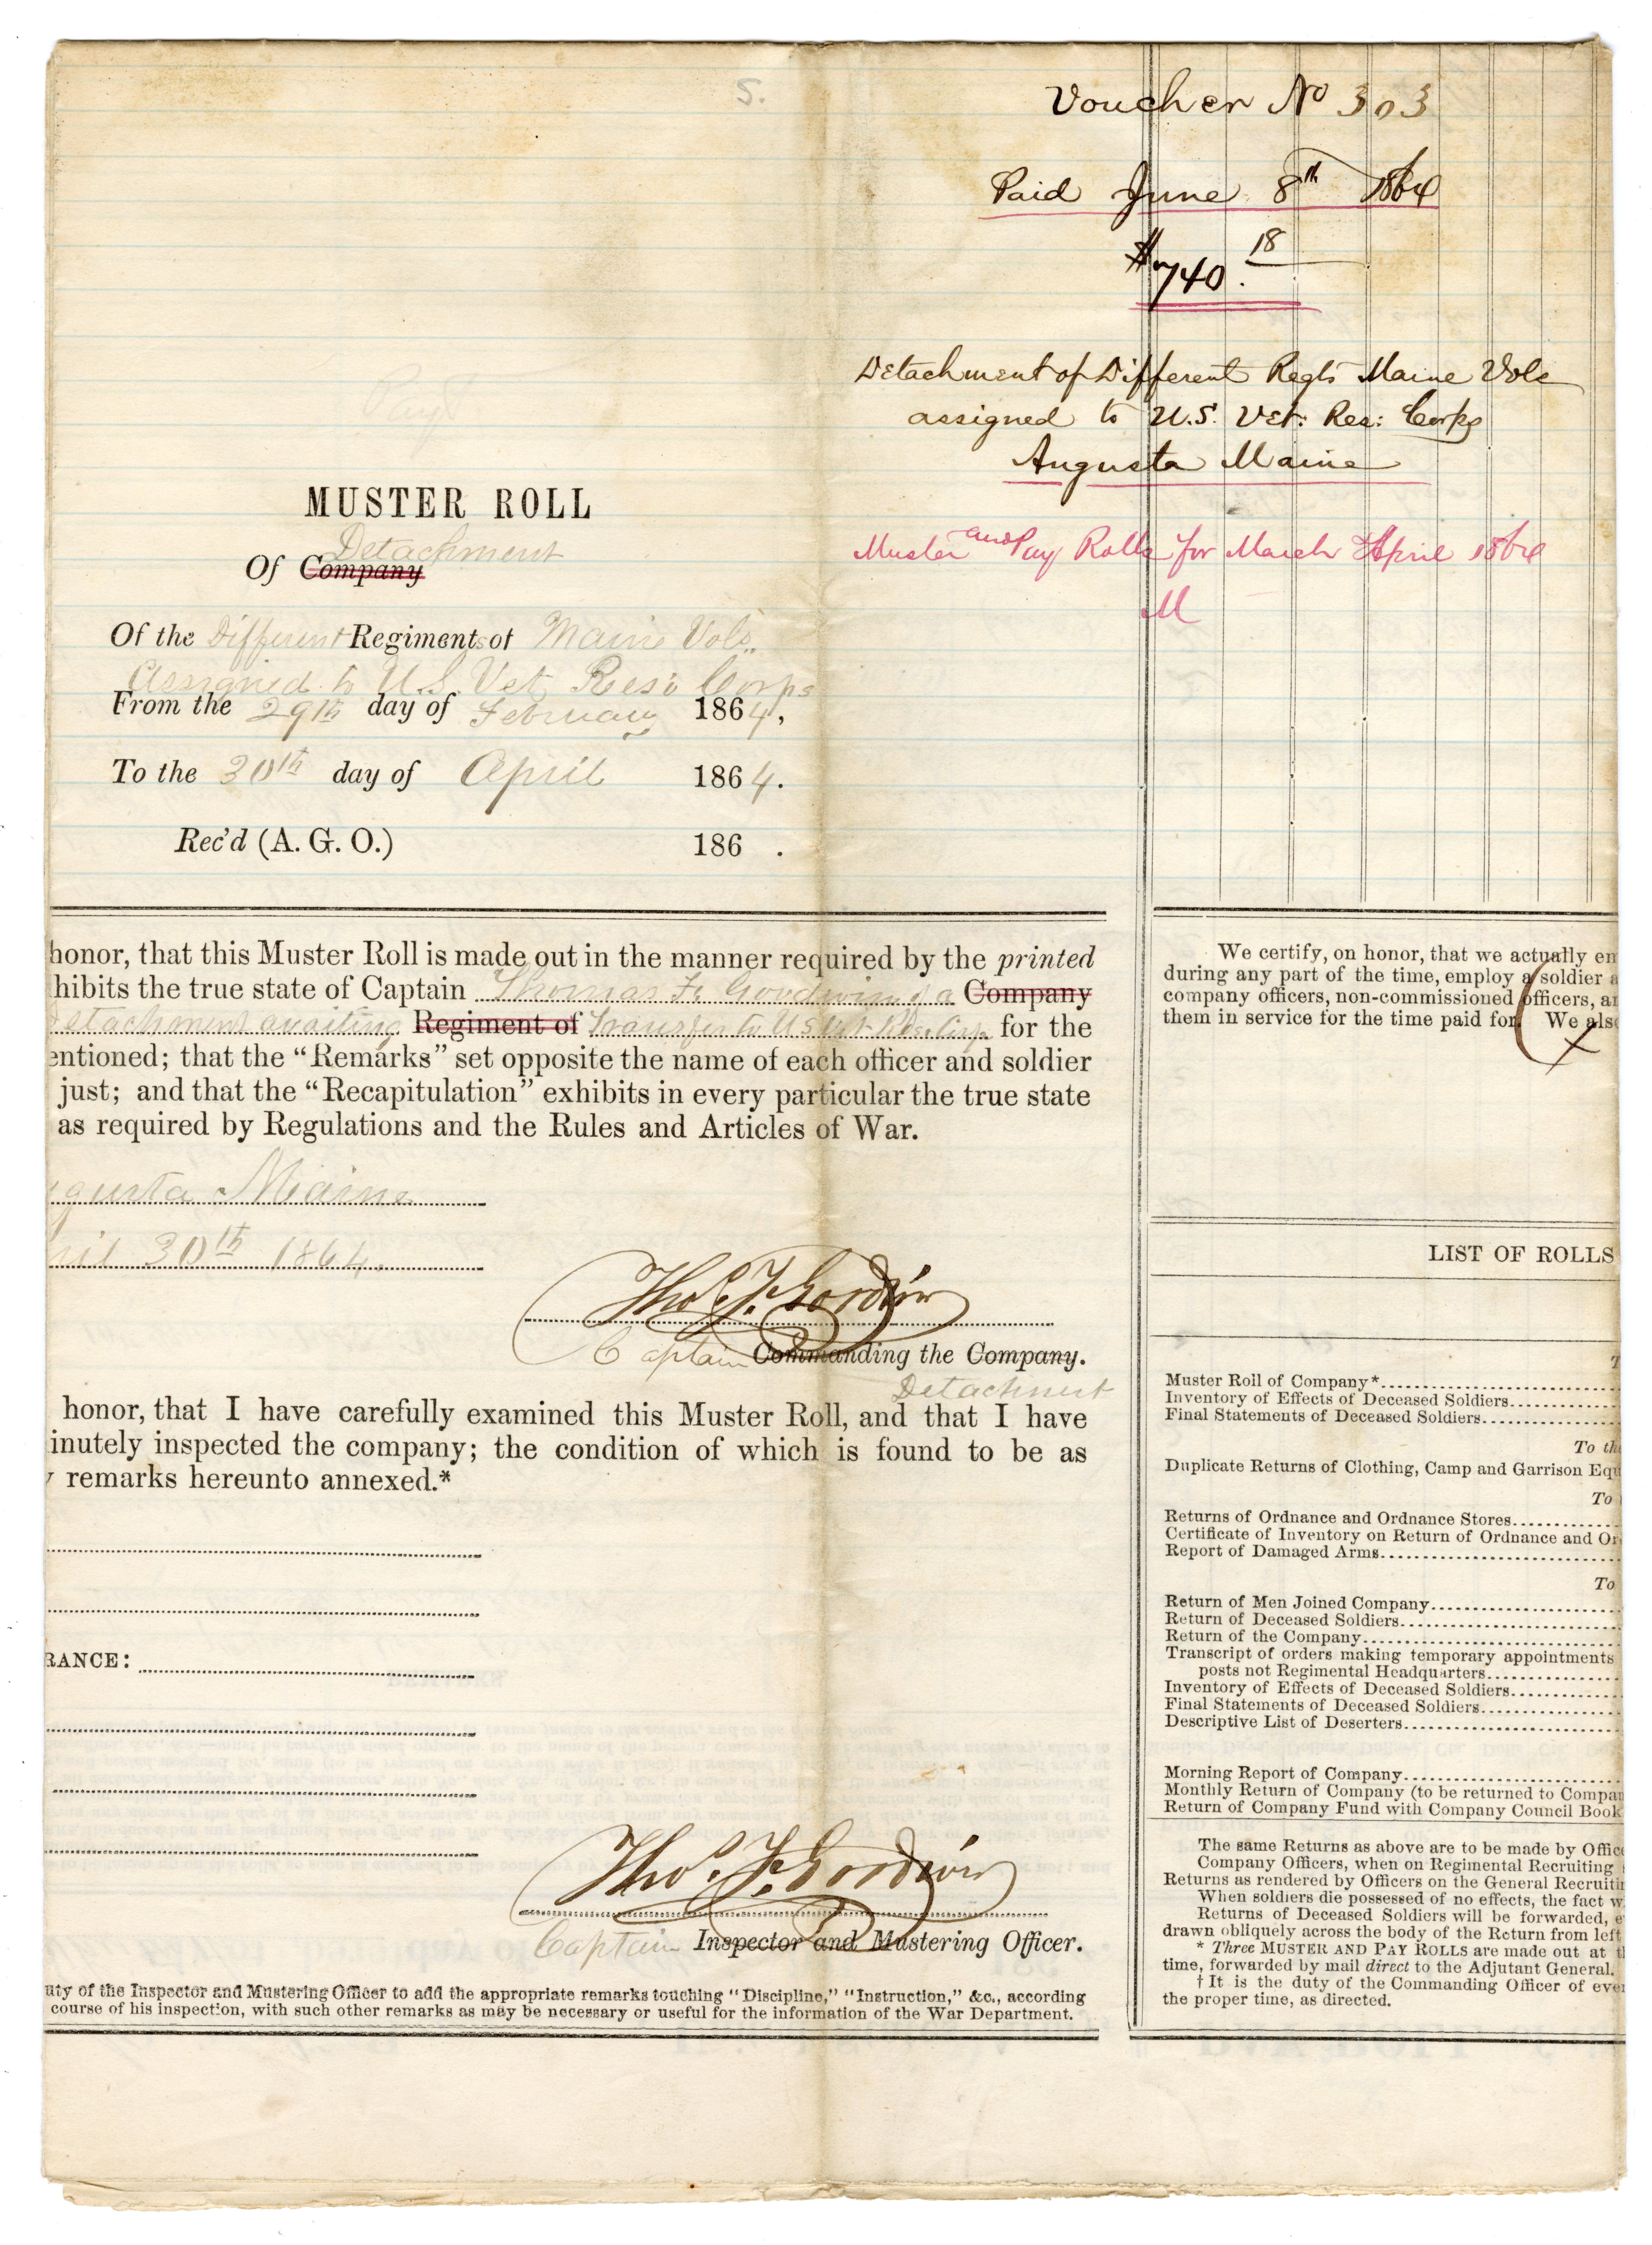 S.
Voucher No 303
Paid June 8th 1864
$740.18
Detachment of Different Regts Maine Vols
assigned to U.S. Vet: Res: Corps
Augusta Maine
Muster and Pay Rolls for March & April 1864
M
Pay
MUSTER ROLL
Detachment
Of Company
Of the Different Regiments of Maine Vols.
Assigned to U.S. Vet Resv Corps
From the 29th day of February 1864,
To the 30th day of April 1864.
Rec'd (A. G. O.) 186 .
honor, that this Muster Roll is made out in the manner required by the printed
hibits the true state of Captain Thomas F. Goodwin of a Company
etachment awaiting Regiment of Transfer to U S Vet Res. Corps for the
entioned; that the “Remarks” set opposite the name of each officer and soldier
just; and that the “Recapitulation” exhibits in every particular the true state
as required by Regulations and the Rules and Articles of War.
gusta Maine
ril 30th 1864.
Tho.s F. Goodwin
Captain Commanding the Company.
Detachment
honor, that I have carefully examined this Muster Roll, and that I have
inutely inspected the company; the condition of which is found to be as
y remarks hereunto annexed.*
RANCE:
Tho.s F. Goodwin
Captain Inspector and Mustering Officer.
uty of the Inspector and Mustering Officer to add the appropriate remarks touching “Discipline,” “Instruction,” &c., according
course of his inspection, with such other remarks as may be necessary or useful for the information of the War Department.
We certify, on honor, that we actually en
during any part of the time, employ a soldier a
company officers, non-commissioned officers, an
them in service for the time paid for. We also
x
LIST OF ROLLS
T
Muster Roll of Company*
Inventory of Effects of Deceased Soldiers
Final Statements of Deceased Soldiers
To the
Duplicate Returns of Clothing, Camp and Garrison Equ
To
Returns of Ordnance and Ordnance Stores
Certificate of Inventory on Return of Ordnance and Or
Report of Damaged Arms
To
Return of Men Joined Company
Return of Deceased Soldiers
Return of the Company
Transcript of orders making temporary appointments
posts not Regimental Headquarters
Inventory of Effects of Deceased Soldiers
Final Statements of Deceased Soldiers
Descriptive List of Deserters
Morning Report of Company
Monthly Return of Company (to be returned to Compan
Return of Company Fund with Company Council Book
The same Returns as above are to be made by Office
Company Officers, when on Regimental Recruiting
Returns as rendered by Officers on the General Recruitin
When soldiers die possessed of no effects, the fact w
Returns of Deceased Soldiers will be forwarded, e
drawn obliquely across the body of the Return from left
* Three MUSTER AND PAY ROLLS are made out at t
time, forwarded by mail direct to the Adjutant General.
† It is the duty of the Commanding Officer of ever
the proper time, as directed.